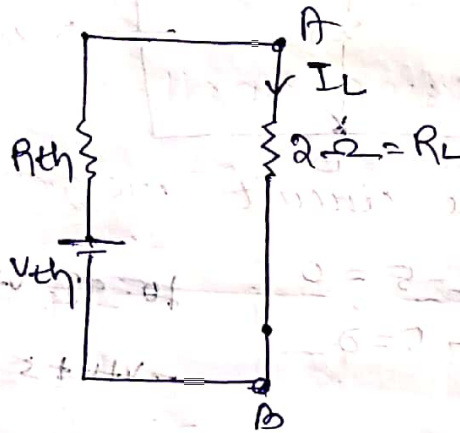 A
IL
Rth
2Ω = RL
Vth.
B